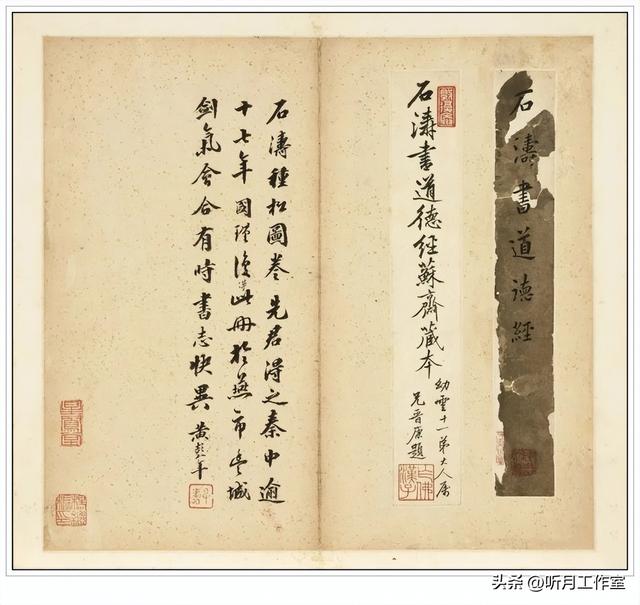 石濤書道德經
石濤書道德經蘇齋藏本
幼雲十一弟大人属
兄題
石濤種松圖卷先君得之秦中逾
十七年國瑾復得此冊於燕市豐城
劍氣會合有時書志快異 黃彭年
头条 @听月工作室